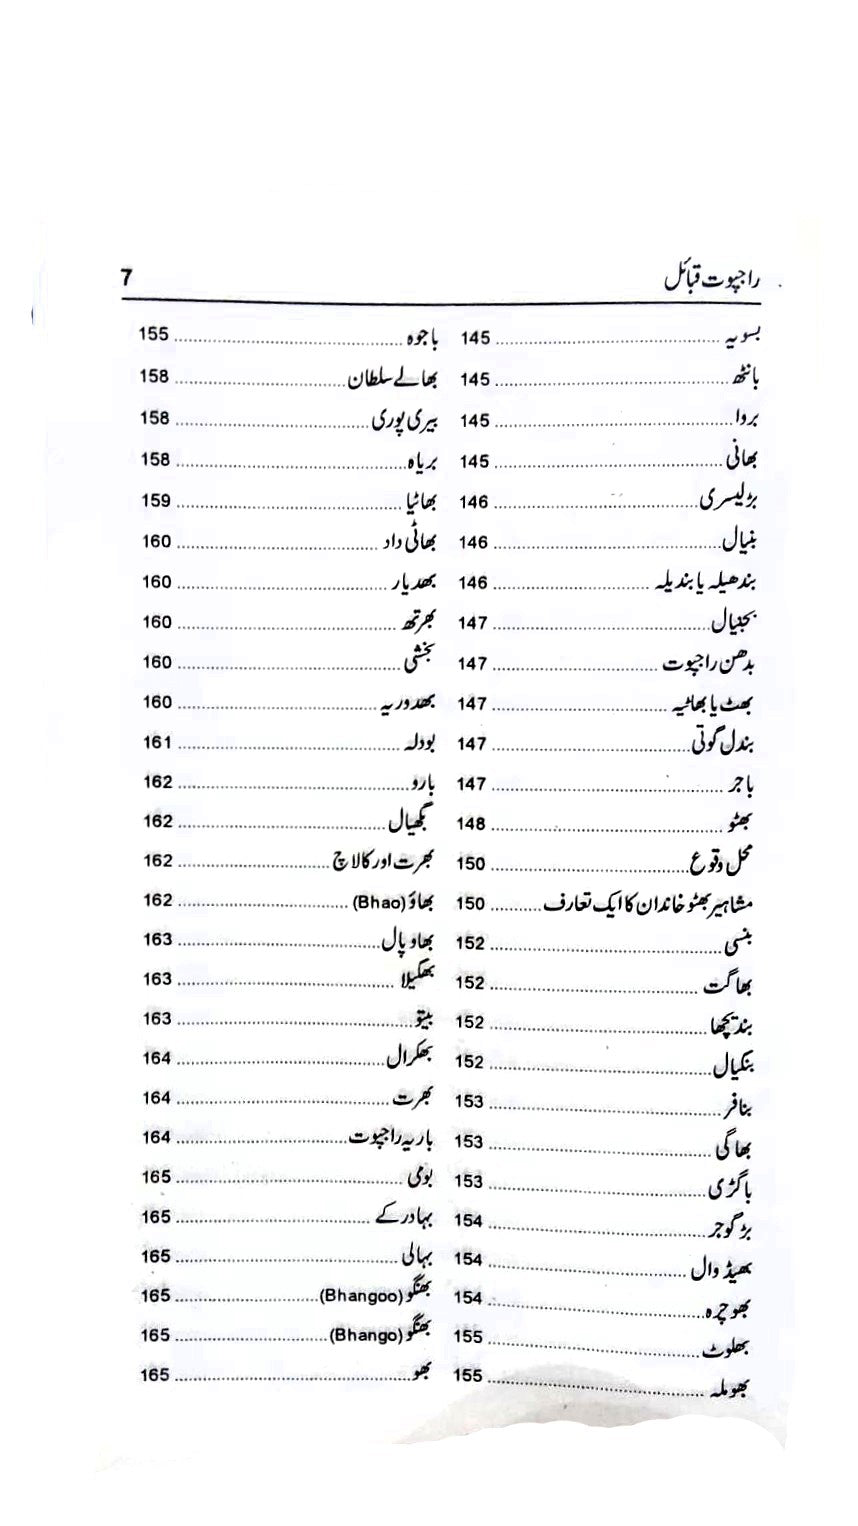 راجپوت قبائل 7
بسویہ 145
بانٹھ 145
بروا 145
بھانی 145
بڑلیسری 146
بنیال 146
بندھیلہ یا بندیلہ 146
بجنیال 147
بدھن راجپوت 147
بھٹ یا بھاٹیہ 147
بندل گوتی 147
باجر 147
بھٹو 148
محل وقوع 150
مشاہیر بھٹو خاندان کا ایک تعارف 150
بنسی 152
بھاگت 152
بندیچھا 152
بنکیال 152
بنافر 153
بھاگی 153
باگڑی 153
بڑگوجر 154
بھیڈوال 154
بھوچرہ 154
بھلوٹ 155
بھوملہ 155
باجوہ 155
بھالے سلطان 158
بیری پوری 158
بریاہ 158
بھاٹیا 159
بھاٹی داد 160
بھدیار 160
بھرتھ 160
بخشی 160
بھدوریہ 160
بودلہ 161
بارو 162
بگھیال 162
بھرت اور کالاچ 162
بھاؤ (Bhao) 162
بھاوپال 163
بھکیلا 163
بیتو 163
بھکرال 164
بھرت 164
باریہ راجپوت 164
بومی 165
بہادرکے 165
بہالی 165
بھنگو (Bhangoo) 165
بھنگو (Bhango) 165
بھو 165